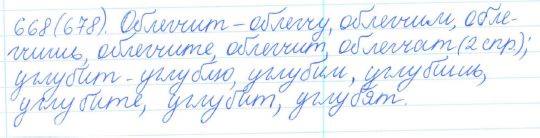 668(678). Облегчит – облегчу, облегчим, обле-
гчишь, облегчите, облегчит, облегчат (2 спр.);
углубит – углублю, углубим, углубишь,
углубите, углубит, углубят.